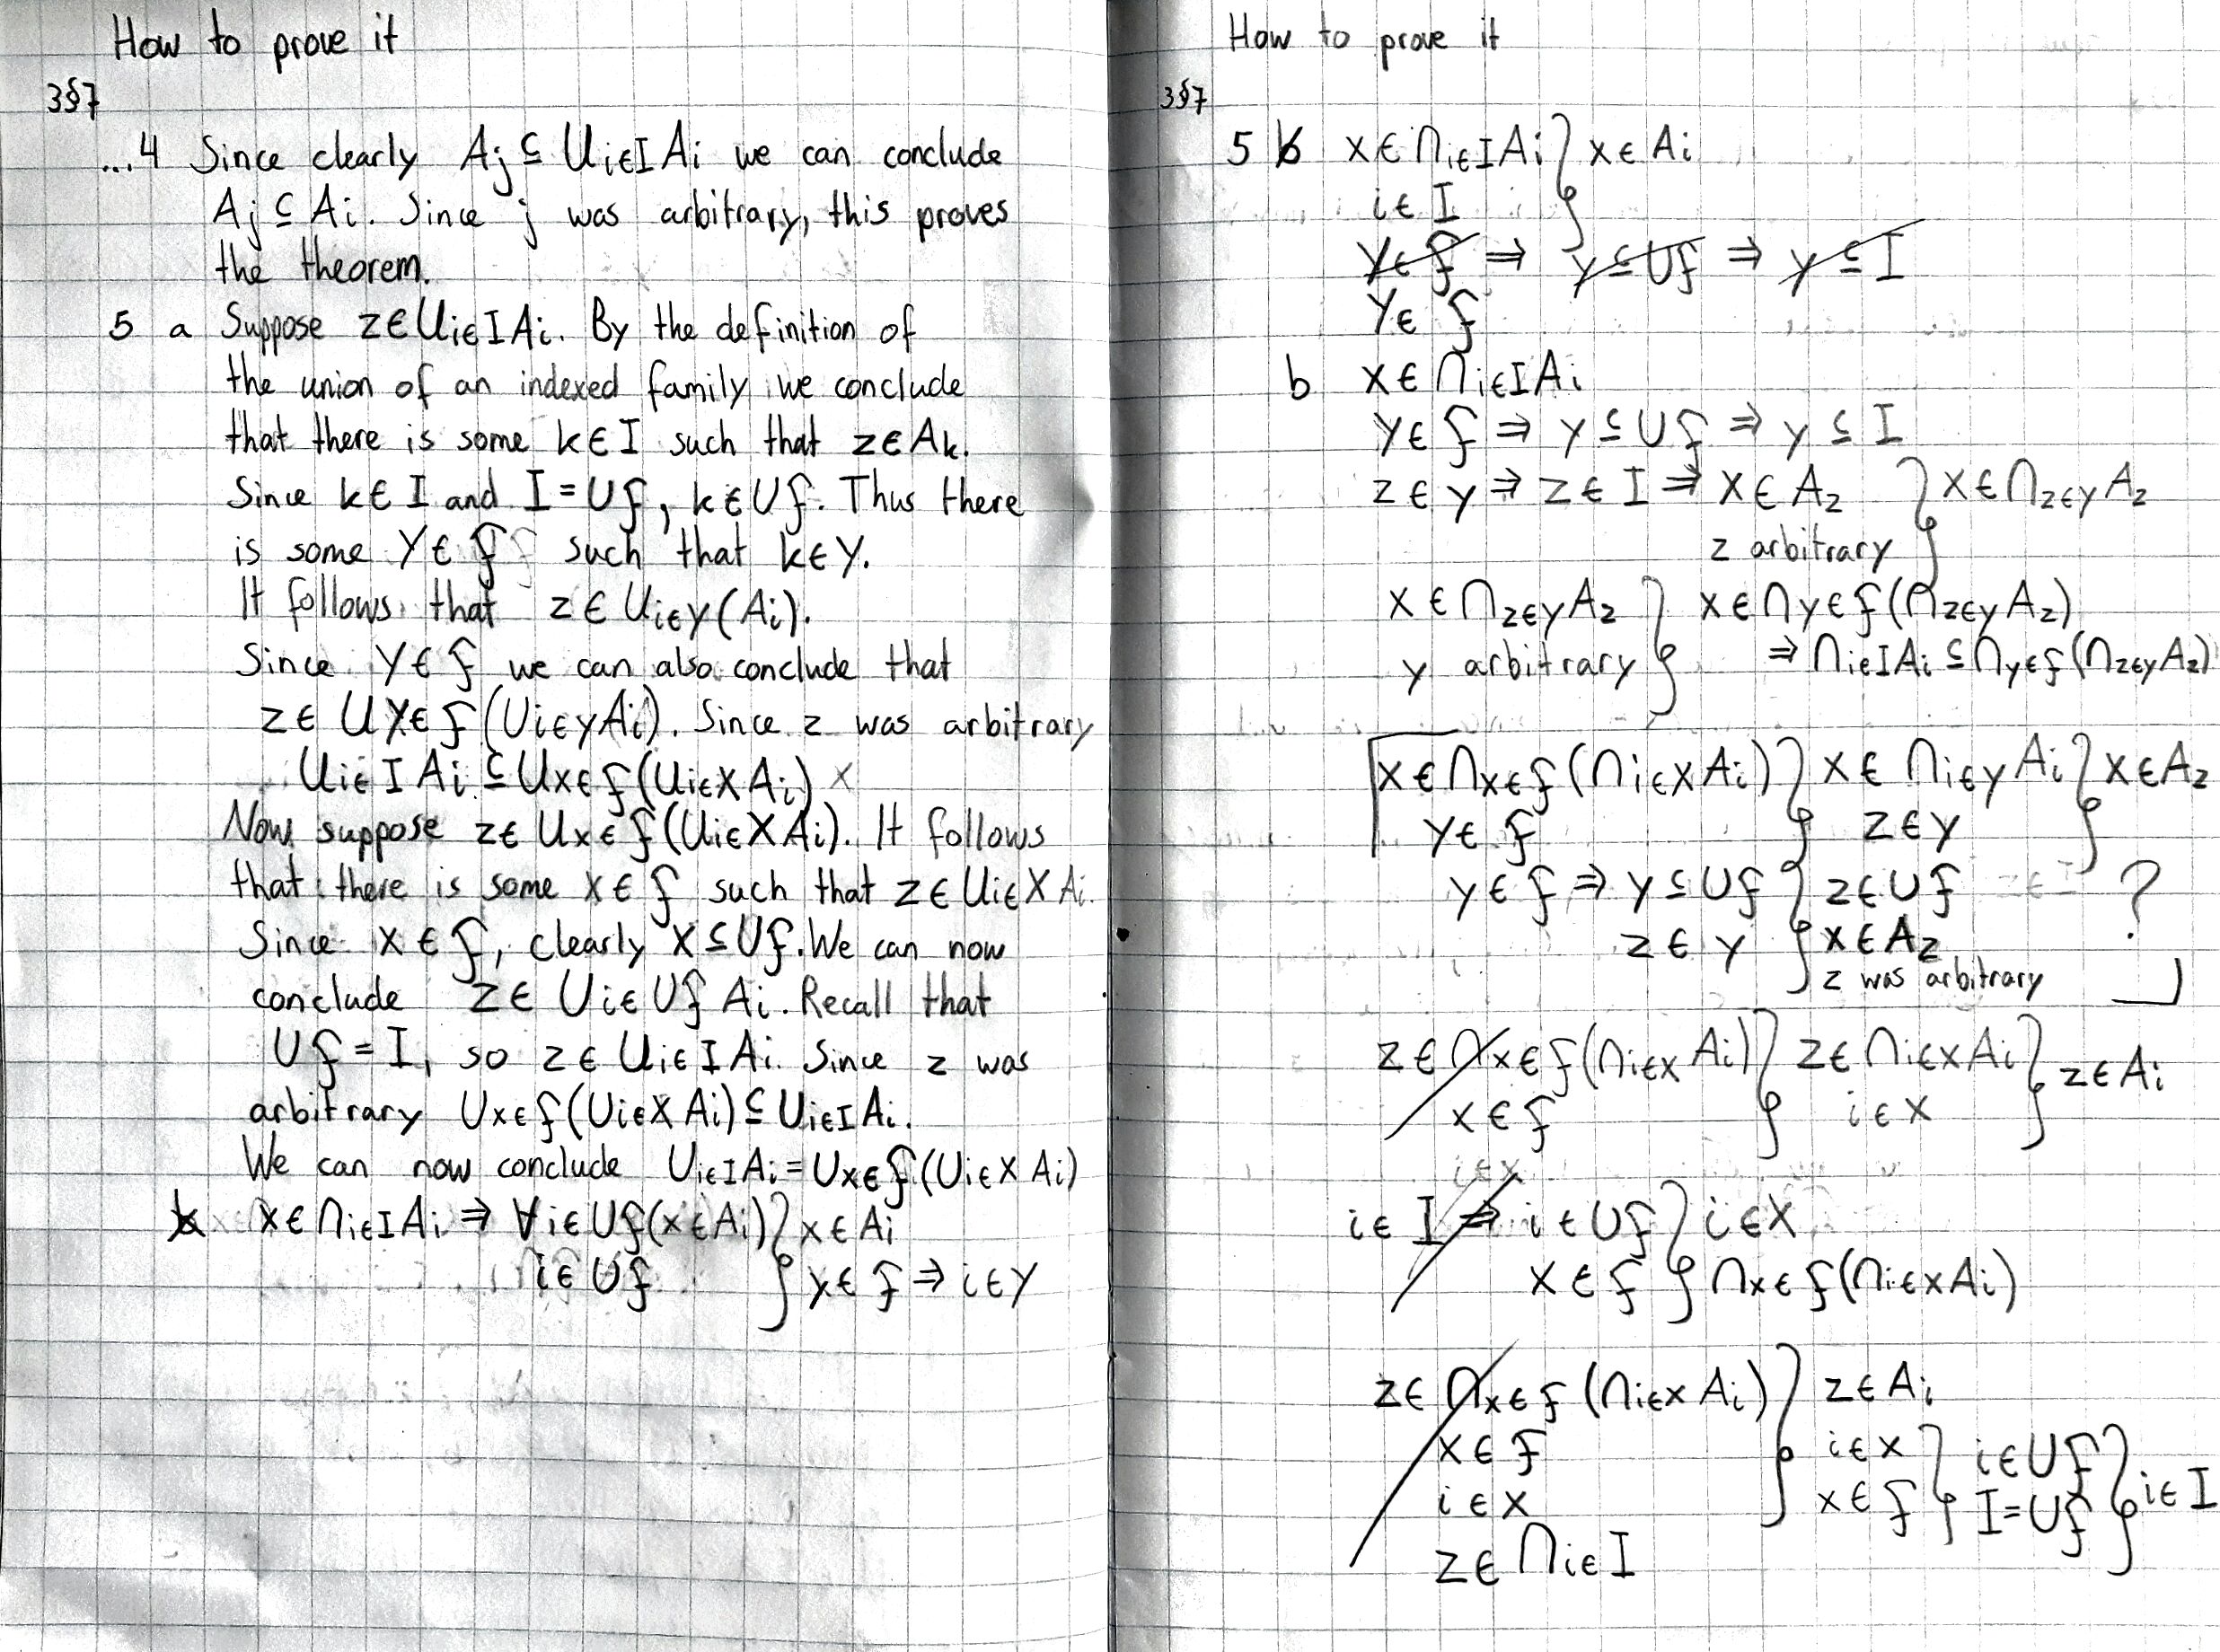 How to prove it
3§7
...4 Since clearly Aj ⊆ ∪i∈I Ai we can conclude
Aj ⊆ Ai. Since j was arbitrary, this proves
the theorem.
5 a Suppose z∈∪i∈I Ai. By the definition of
the union of an indexed family we conclude
that there is some k∈I such that z∈Ak.
Since k∈I and I=∪F, k∈∪F. Thus there
is some Y∈F such that k∈Y.
It follows that z∈∪i∈Y(Ai).
Since Y∈F we can also conclude that
z∈∪X∈F(∪i∈Y Ai). Since z was arbitrary
∪i∈I Ai ⊆ ∪X∈F(∪i∈X Ai)
Now suppose z∈∪X∈F(∪i∈X Ai). It follows
that there is some X∈F such that z∈∪i∈X Ai.
Since X∈F, clearly X⊆∪F. We can now
conclude z∈∪i∈∪F Ai. Recall that
∪F=I, so z∈∪i∈I Ai. Since z was
arbitrary ∪X∈F(∪i∈X Ai)⊆∪i∈I Ai.
We can now conclude ∪i∈I Ai=∪X∈F(∪i∈X Ai)
b x∈∩i∈I Ai ⇒ ∀i∈∪F(x∈Ai) } x∈Ai
i∈∪F } y∈F ⇒ i∈Y
How to prove it
3§7
5 b x∈∩i∈I Ai } x∈Ai
i∈I
Y∈F ⇒ y⊆∪F ⇒ y⊆I
Y∈F
b x∈∩i∈I Ai
y∈F ⇒ y⊆∪F ⇒ y⊆I
z∈y ⇒ z∈I ⇒ x∈Az } x∈∩z∈y Az
z arbitrary
x∈∩z∈y Az } x∈∩y∈F(∩z∈y Az)
y arbitrary } ⇒ ∩i∈I Ai ⊆ ∩y∈F(∩z∈y Az)
x∈∩X∈F(∩i∈X Ai) } x∈∩i∈y Ai } x∈Az
y∈F } z∈y
y∈F ⇒ y⊆∪F } z∈∪F ?
z∈y } x∈Az
z was arbitrary
z∈∩x∈F(∩i∈x Ai) } z∈∩i∈x Ai } z∈Ai
x∈F } i∈x
i∈x
i∈I ⇒ i∈∪F } i∈X
X∈F } ∩x∈F(∩i∈x Ai)
z∈∩x∈F(∩i∈x Ai) } z∈Ai
x∈F } i∈x } i∈∪F } i∈I
i∈x } x∈F } I=∪F
z∈∩i∈I